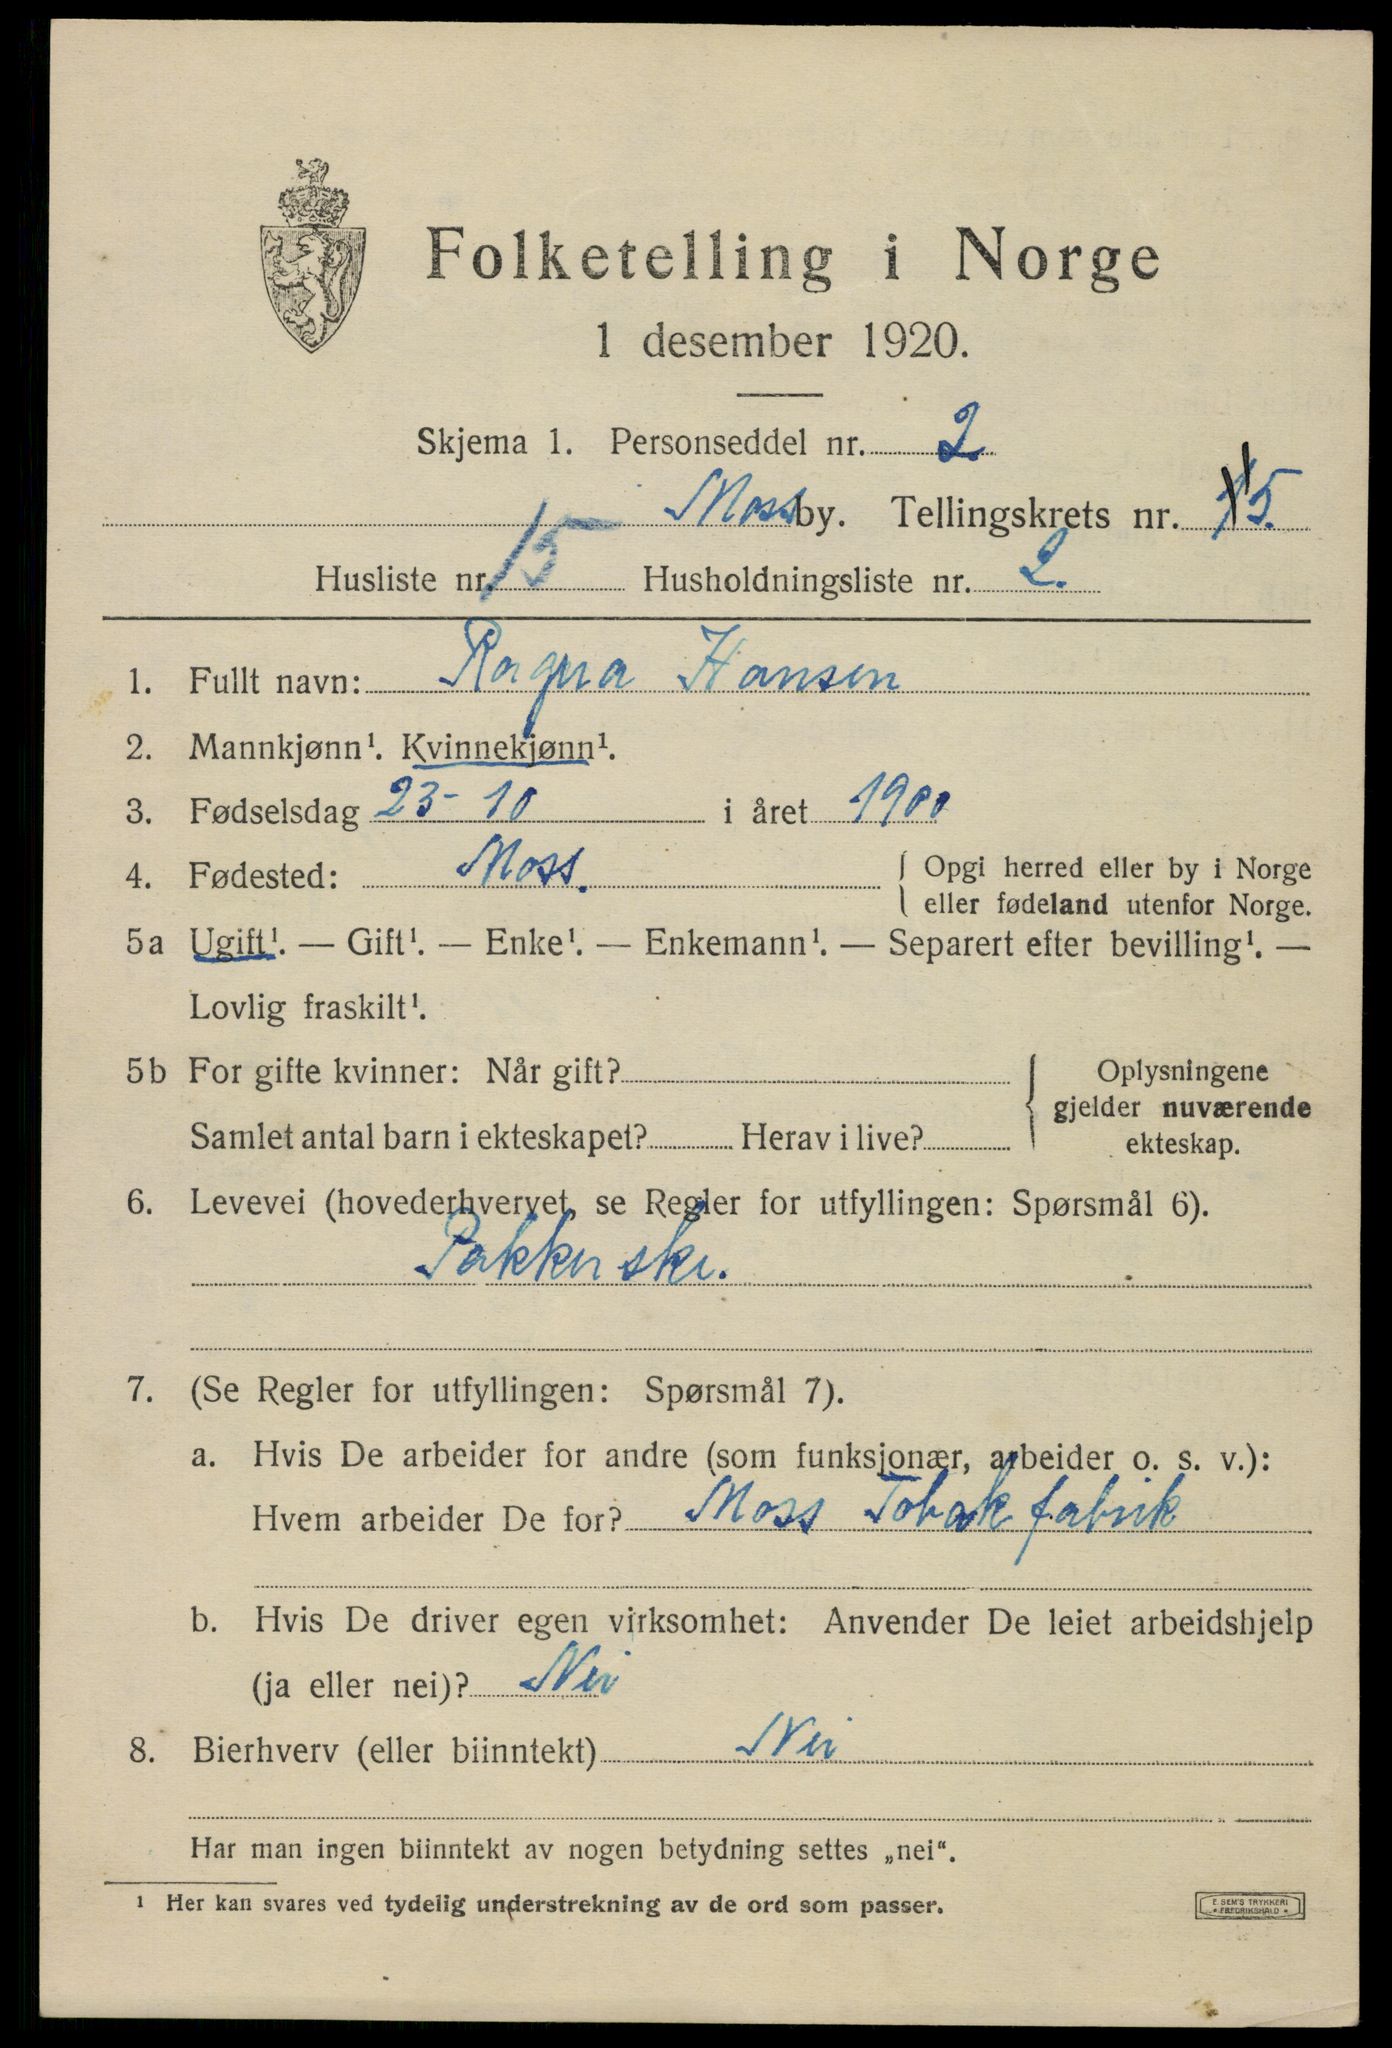 Folketelling i Norge
1 desember 1920.
Skjema 1. Personseddel nr. 2.
Moss by. Tellingskrets nr. 5.
Husliste nr. 15 Husholdningsliste nr. 2.
1. Fullt navn: Ragna Hansen
2. Mannkjønn¹. Kvinnekjønn¹.
3. Fødselsdag 23-10 i året 1900
4. Fødested: Moss. Opgi herred eller by i Norge
eller fødeland utenfor Norge.
5a Ugift¹. — Gift¹. — Enke¹. — Enkemann¹. — Separert efter bevilling¹. —
Lovlig fraskilt¹.
5b For gifte kvinner: Når gift?
Samlet antal barn i ekteskapet? Herav i live?
Oplysningene
gjelder nuværende
ekteskap.
6. Levevei (hovederhvervet, se Regler for utfyllingen: Spørsmål 6).
Pakkerske.
7. (Se Regler for utfyllingen: Spørsmål 7).
a. Hvis De arbeider for andre (som funksjonær, arbeider o. s. v.):
Hvem arbeider De for? Moss Tobakfabrik
b. Hvis De driver egen virksomhet: Anvender De leiet arbeidshjelp
(ja eller nei)? Nei
8. Bierhverv (eller biinntekt) Nei
Har man ingen biinntekt av nogen betydning settes „nei“.
¹ Her kan svares ved tydelig understrekning av de ord som passer.
E. SEM'S TRYKKERI
FREDRIKSHALD